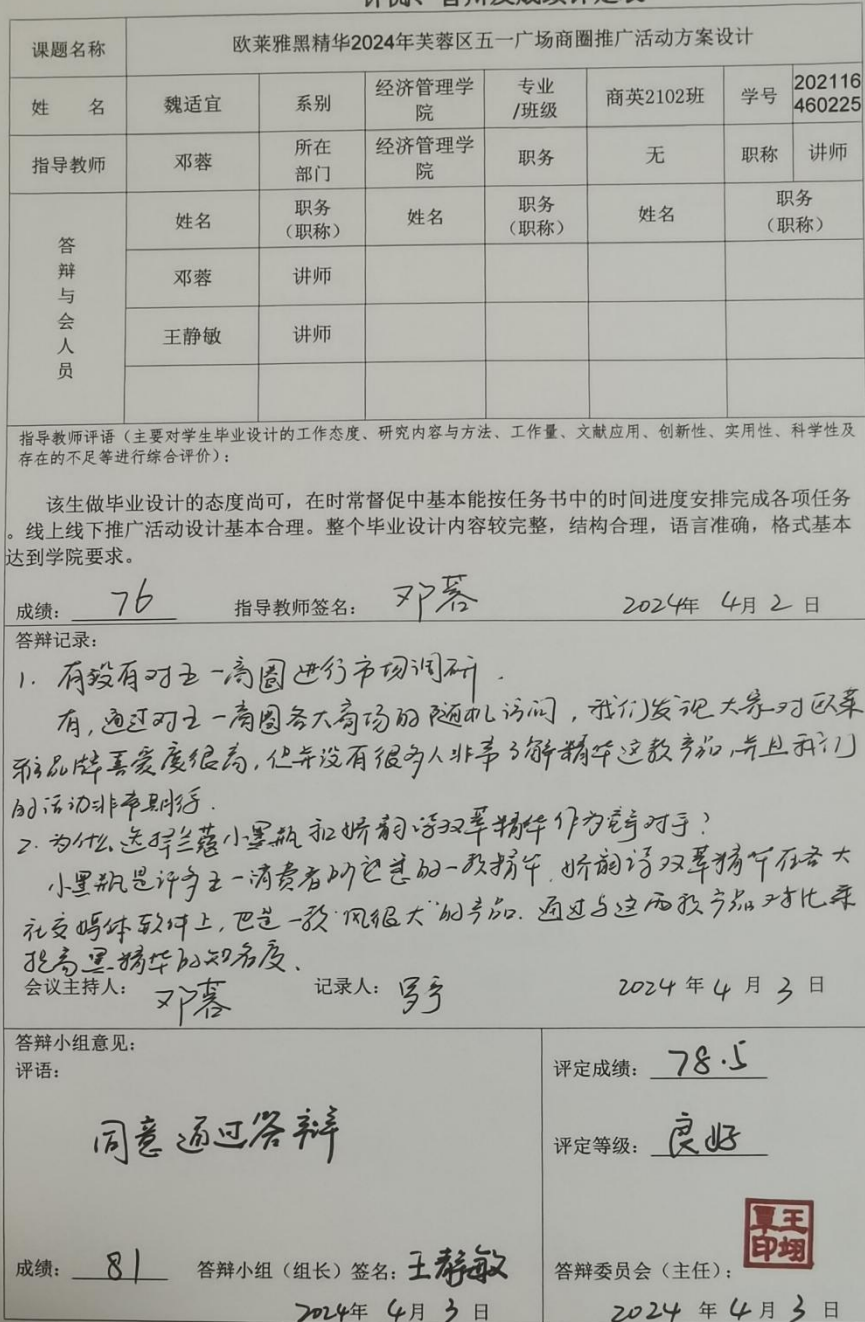 评阅、答辩及成绩评定表
课题名称 欧莱雅黑精华2024年芙蓉区五一广场商圈推广活动方案设计
姓 名 魏适宜 系别 经济管理学院 专业/班级 商英2102班 学号 202116460225
指导教师 邓蓉 所在部门 经济管理学院 职务 无 职称 讲师
答辩与会人员 姓名 职务（职称） 姓名 职务（职称） 姓名 职务（职称）
邓蓉 讲师
王静敏 讲师
指导教师评语（主要对学生毕业设计的工作态度、研究内容与方法、工作量、文献应用、创新性、实用性、科学性及
存在的不足等进行综合评价）：
该生做毕业设计的态度尚可，在时常督促中基本能按任务书中的时间进度安排完成各项任务
。线上线下推广活动设计基本合理。整个毕业设计内容较完整，结构合理，语言准确，格式基本
达到学院要求。
成绩： 76 指导教师签名： 邓蓉 2024年 4月 2 日
答辩记录：
1. 有没有对五一商圈进行市场调研．
有，通过对五一商圈各大商场的随机访问，我们发现大家对欧莱
雅品牌喜爱度很高，但并没有很多人非常了解精华这款产品，并且我们
的活动非常
2. 为什么选择兰蔻小黑瓶和娇韵诗双萃精华作为竞争对手？
小黑瓶是许多五一消费者所的一款精华，娇韵诗双萃精华在各大
社交媒体软件上，已是一款“风很大”的产品．通过与这两款产品对比来
提高黑精华的知名度．
会议主持人： 邓蓉 记录人： 2024 年 4 月 3 日
答辩小组意见：
评语：
同意通过答辩
成绩： 81 答辩小组（组长）签名：王静敏
2024年 4月 3 日
评定成绩： 78.5
评定等级： 良好
答辩委员会（主任）：
2024 年 4 月 3 日